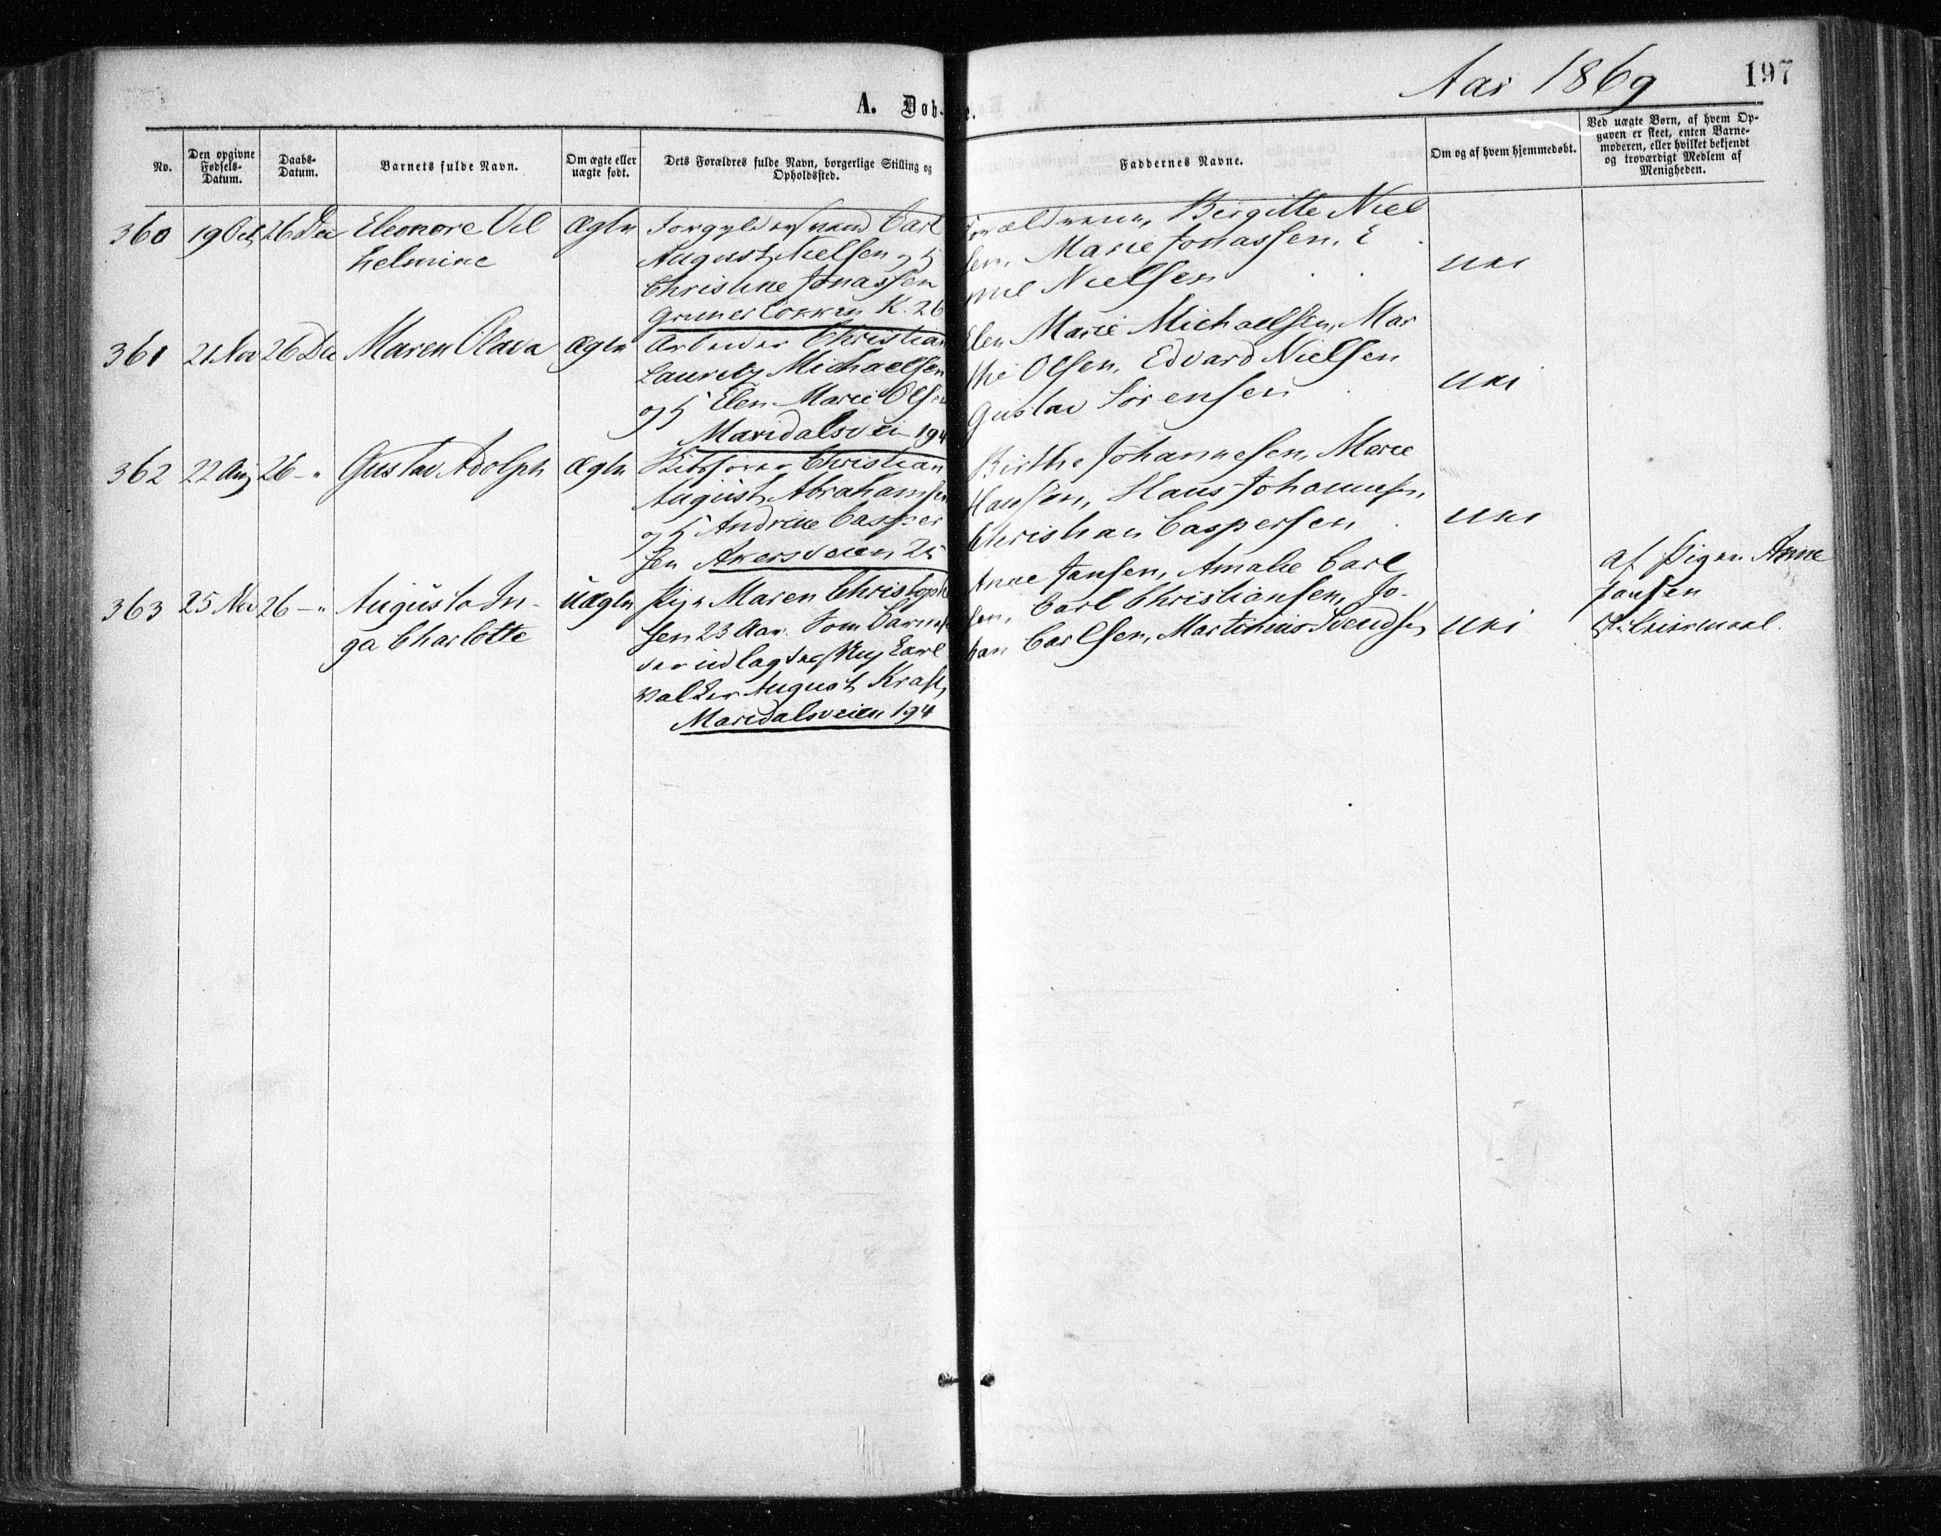 Aar 1869
197
A. Døb-
e.
No.
Den opgivne Fødsels-Datum.
Daabs-Datum.
Barnets fulde Navn.
Om ægte eller uægte født.
Dets Forældres fulde Navn, borgerlige Stilling og Opholdssted.
Faddernes Navne.
Om og af hvem hjemmedøbt.
Ved uægte Børn, af hvem Op-
gaven er skeet, enten Barne-
moderen, eller hvilket bekjendt
og troværdigt Medlem af
Menigheden.
360 19 Oct 26 Dec Eleonore Vil
helmine
Ægte
Forgyldersvend Carl
August Nielsen og H
Christine Jonassen
Grünerløkken K. 26
Forældrene, Birgitte Niel
sen, Marie Jonassen, E
Nielsen
Nei
361 21 Nov 26 Dec Maren Olava
Ægte
Arbeider Christian
Lauritz Michaelsen
og H Elen Marie Olsen
Maridalsvei 194
Elen Marie Michaelsen, Mar
the Olsen, Edvard Nielsen
Gustav Sørensen
Nei
362 22 Aug 26 - " Gustav Adolph
Ægte
Christian
August Abrahamsen
og H Andrine Casper
sen Akersveien 25
Birthe Johannesen, Marie
Hansen, Hans Johannesen,
Christian Caspersen
Nei
363 25 Nov 26 - " Augusta In-
ga Charlotte
Uægte
Pige Maren Christoph
sen 23 Aar. Som Barnefa
der udlagdes Carl
Valter August Kraft,
Maridalsveien 194
Anne Jansen, Amalie Carl
sen, Carl Christiansen, Jo-
han Carlsen, Martinius Svendsen
Nei
af Pigen Anne
Jansen